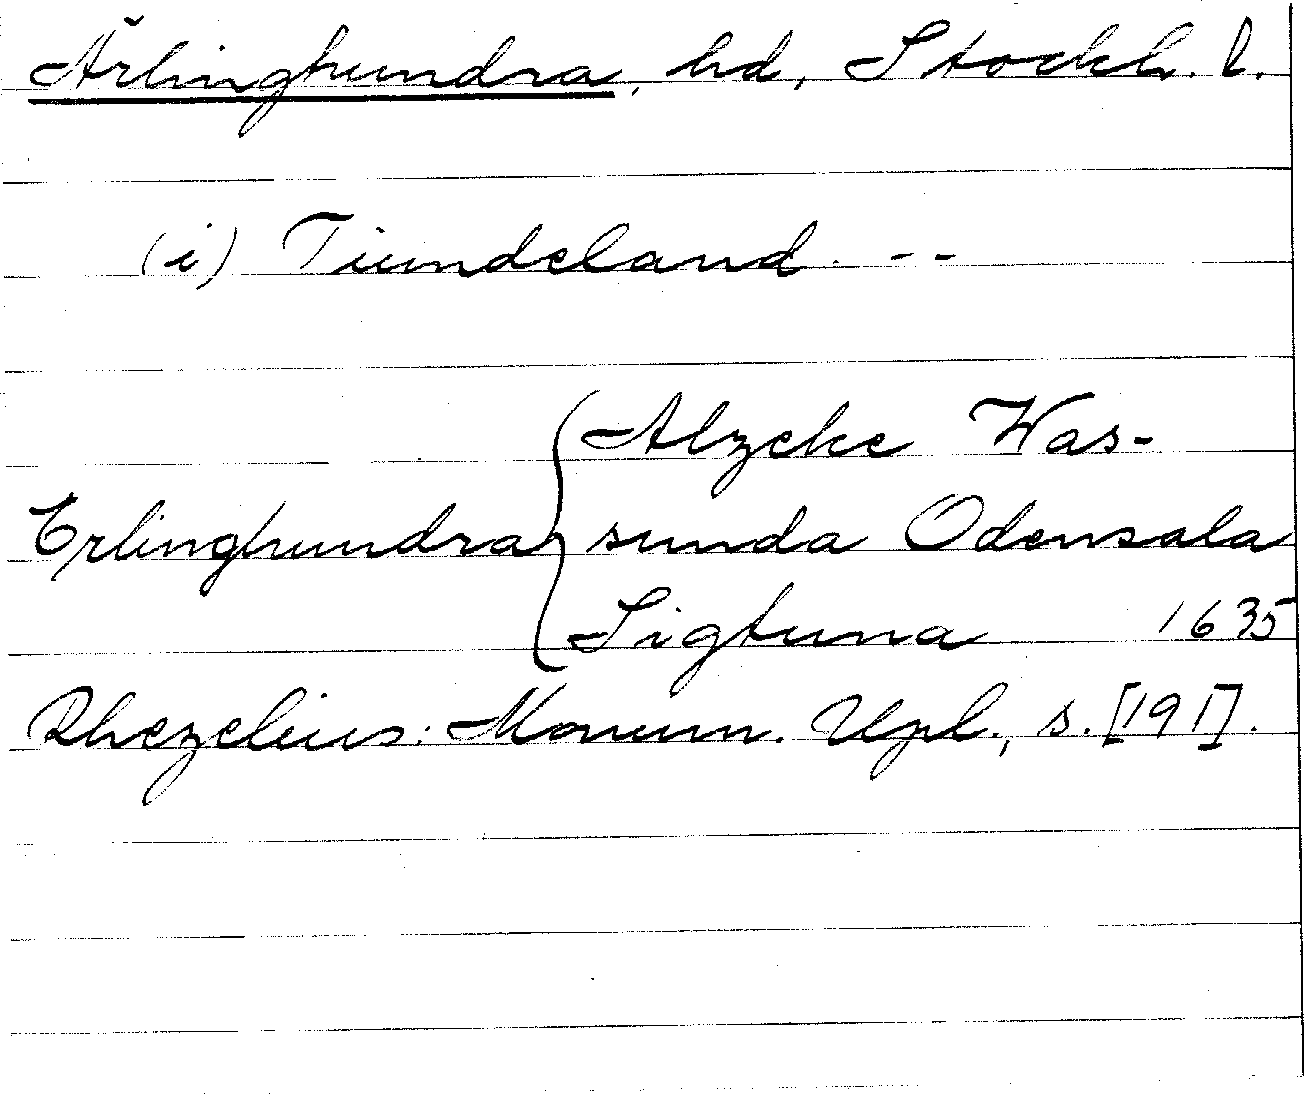 Ärlinghundra, hd, Stockh. l.
(i) Tiundeland. --
Alzeke Was-
Erlinghundra sunda Odensala
Sigtuna 1635
Rhezelius: Monum. Upl., s. [191].